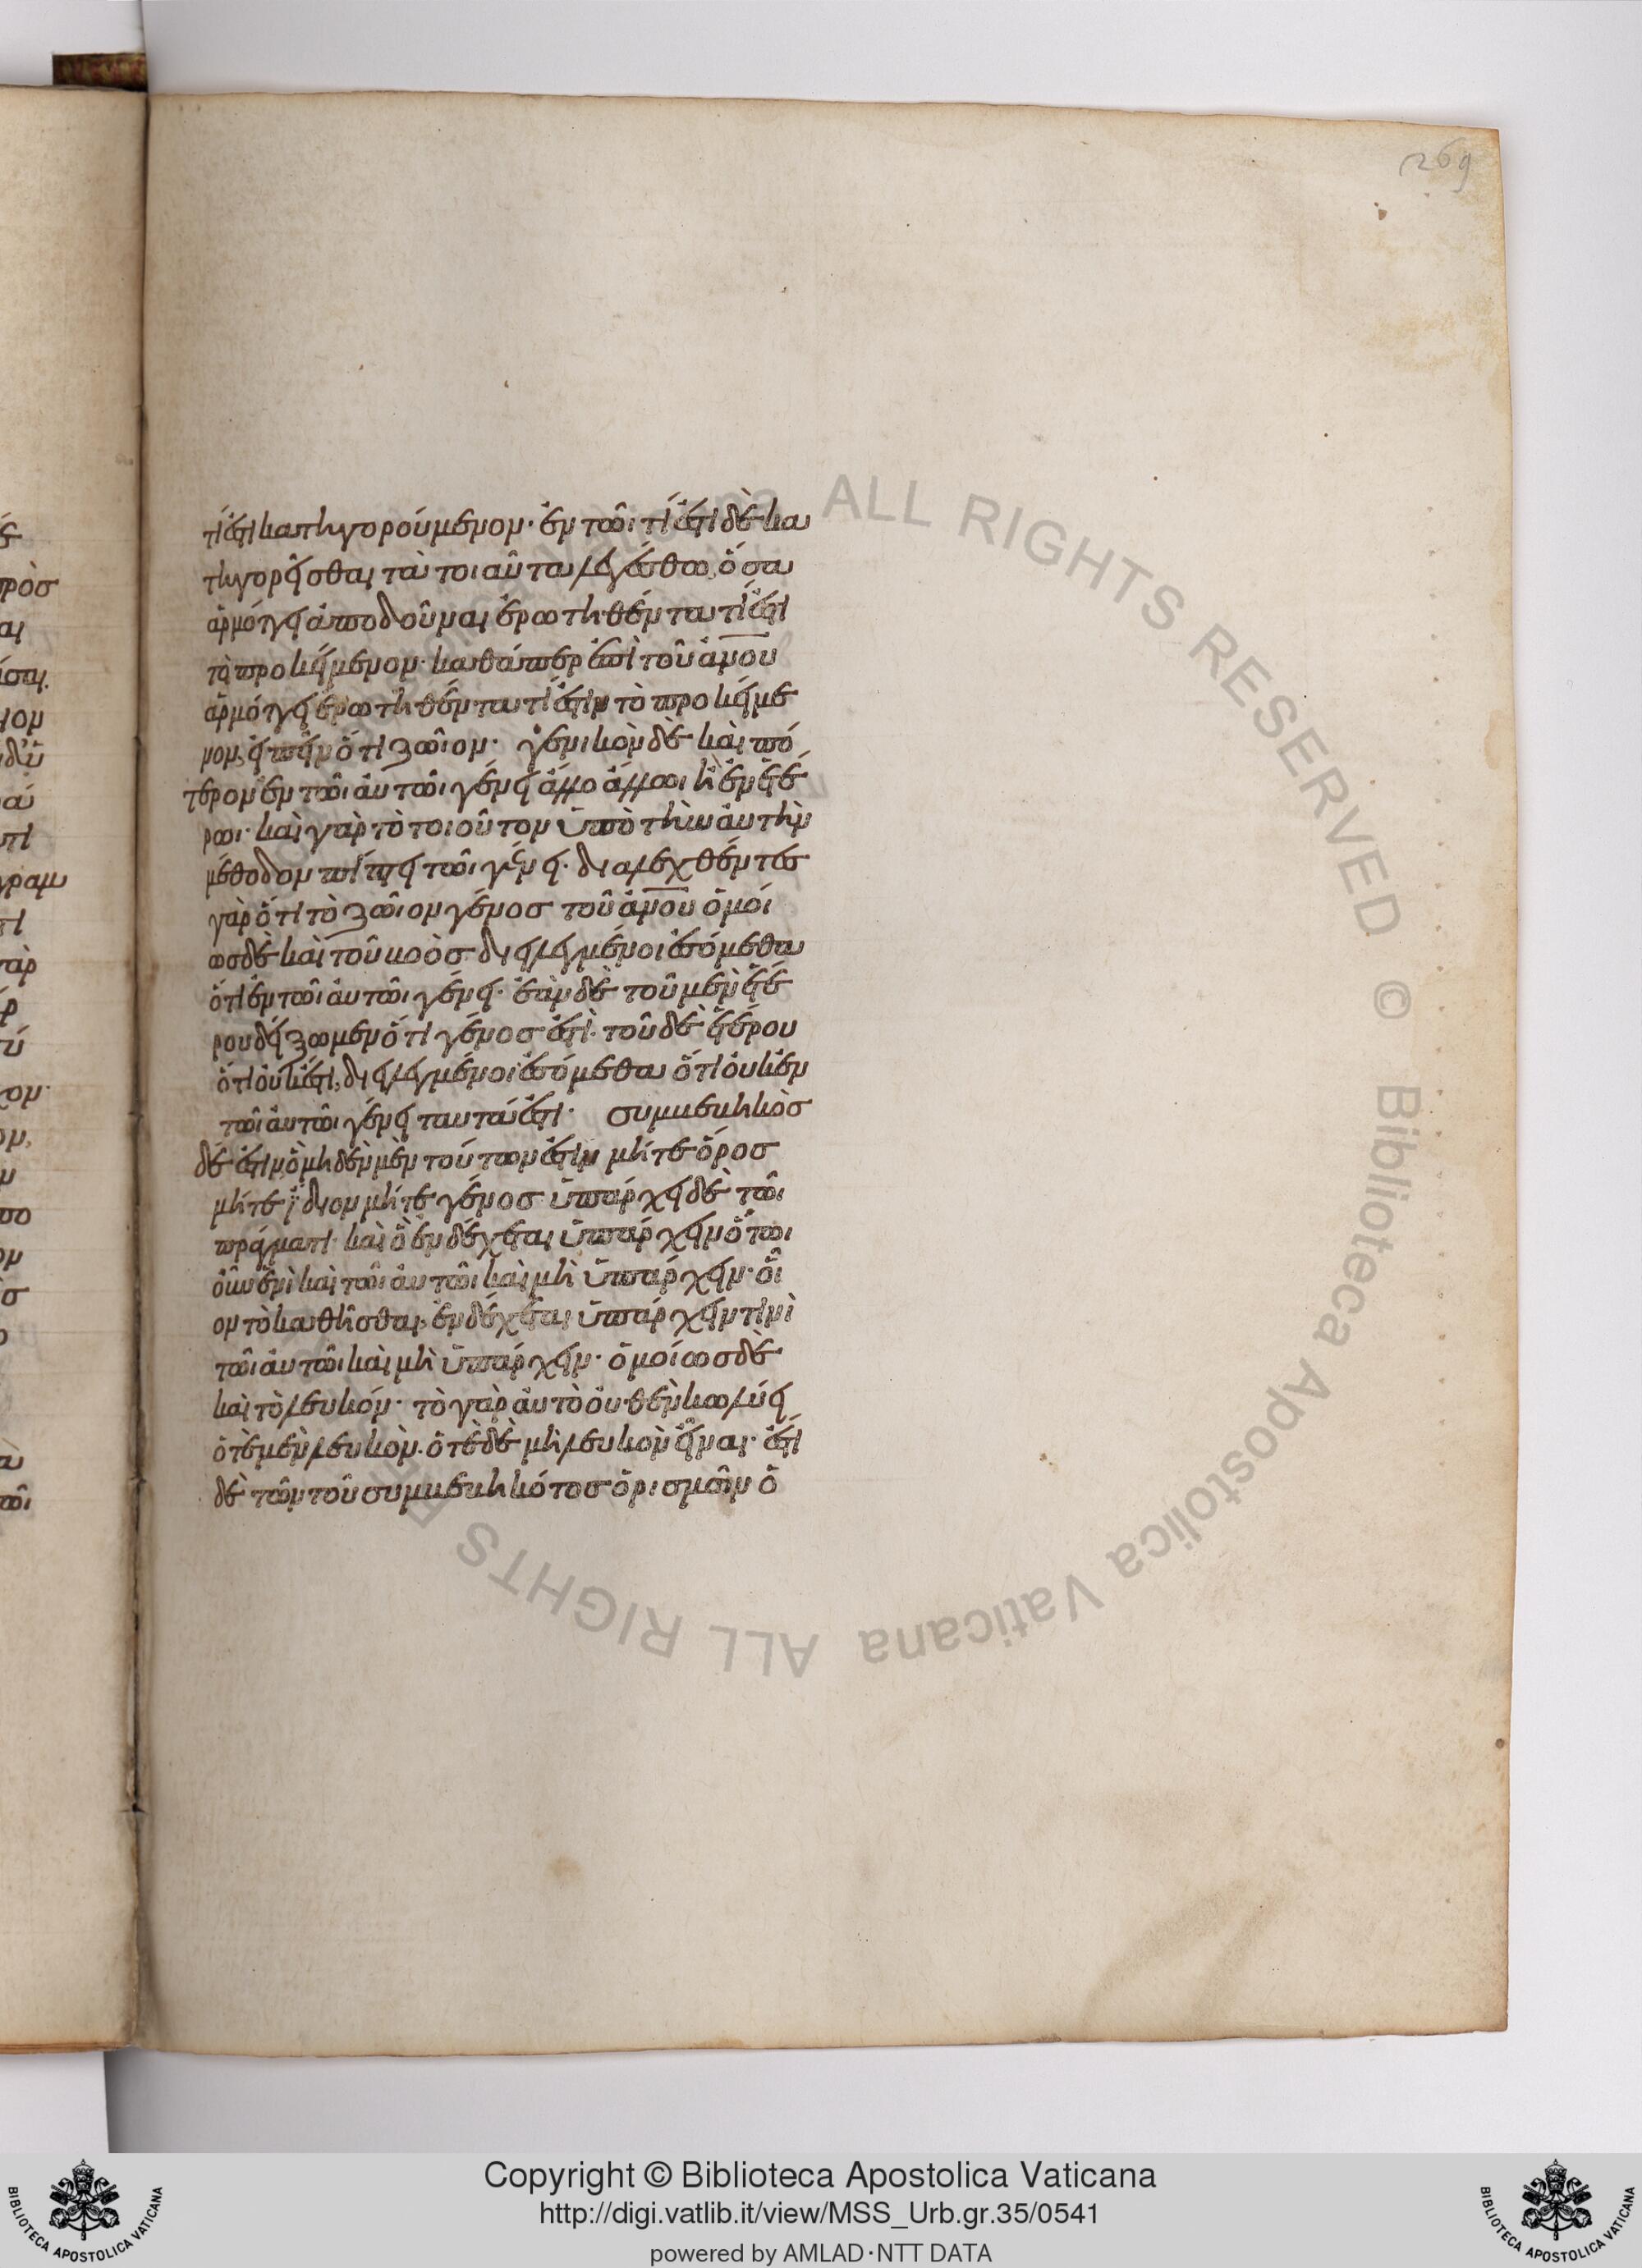 269
τί ἐστι κατηγορούμενον· ἐν τῶι τί ἐστι δὲ κα
τηγορεῖσθαι τὰ τοιαῦτα λεγέσθω, ὅσα
ἁρμόττει ἀποδοῦναι ἐρωτηθέντα τί ἐστι
τὸ προκείμενον· καθάπερ ἐπὶ τοῦ ἀνου
ἁρμόττει ἐρωτηθέντα τί ἐστιν τὸ προκείμε
νον, εἰπεῖν ὅτι ζῶιον· γενικὸν δὲ καὶ πό
τερον ἐν τῶι αὐτῶι γένει ἄλλο ἄλλωι ἢ ἐν ἑτέ
ρωι· καὶ γὰρ τὸ τοιοῦτον ὑπὸ τὴν αὐτὴν
μέθοδον πίπτει τῶι γένει· διαλεχθέντες
γὰρ ὅτι τὸ ζῶιον γένος τοῦ ἀνου ὁμοί
ως δὲ καὶ τοῦ βοὸς διειλεγμένοι ἐσόμεθα
ὅτι ἐν τῶι αὐτῶι γένει· ἐὰν δὲ τοῦ μὲν ἑτέ
ρου δείξωμεν ὅτι γένος ἐστὶ· τοῦ δὲ ἑτέρου
ὅτι οὐκ ἔστι, διειλεγμένοι ἐσόμεθα ὅτι οὐκ ἐν
τῶι αὐτῶι γένει ταυτά ἐστι· συμβεβηκὸς
δέ ἐστιν, ὃ μηδὲν μὲν τούτων ἐστὶν μήτε ὅρος
μήτε ἴδιον μήτε γένος ὑπάρχει δὲ τῶι
πράγματι· καὶ ὃ ἐνδέχεται ὑπάρχειν ὅτωι
οὖν ἑνὶ καὶ τῶι αὐτῶι καὶ μὴ ὑπάρχειν· οἷ
ον τὸ καθῆσθαι, ἐνδέχεται ὑπάρχειν τινὶ
τῶι αὐτῶι καὶ μὴ ὑπάρχειν· ὁμοίως δὲ
καὶ τὸ λευκόν· τὸ γὰρ αὐτὸ οὐθὲν κωλύει
ὁτὲ μὲν λευκὸν· ὁτὲ δὲ μὴ λευκὸν εἶναι· ἔστι
δὲ τῶν τοῦ συμβεβηκότος ὁρισμῶν ὁ
ALL RIGHTS RESERVED © Biblioteca Apostolica Vaticana ALL RIGHTS
Copyright © Biblioteca Apostolica Vaticana
http://digi.vatlib.it/view/MSS_Urb.gr.35/0541
powered by AMLAD·NTT DATA
BIBLIOTECA APOSTOLICA VATICANA
BIBLIOTECA APOSTOLICA VATICANA